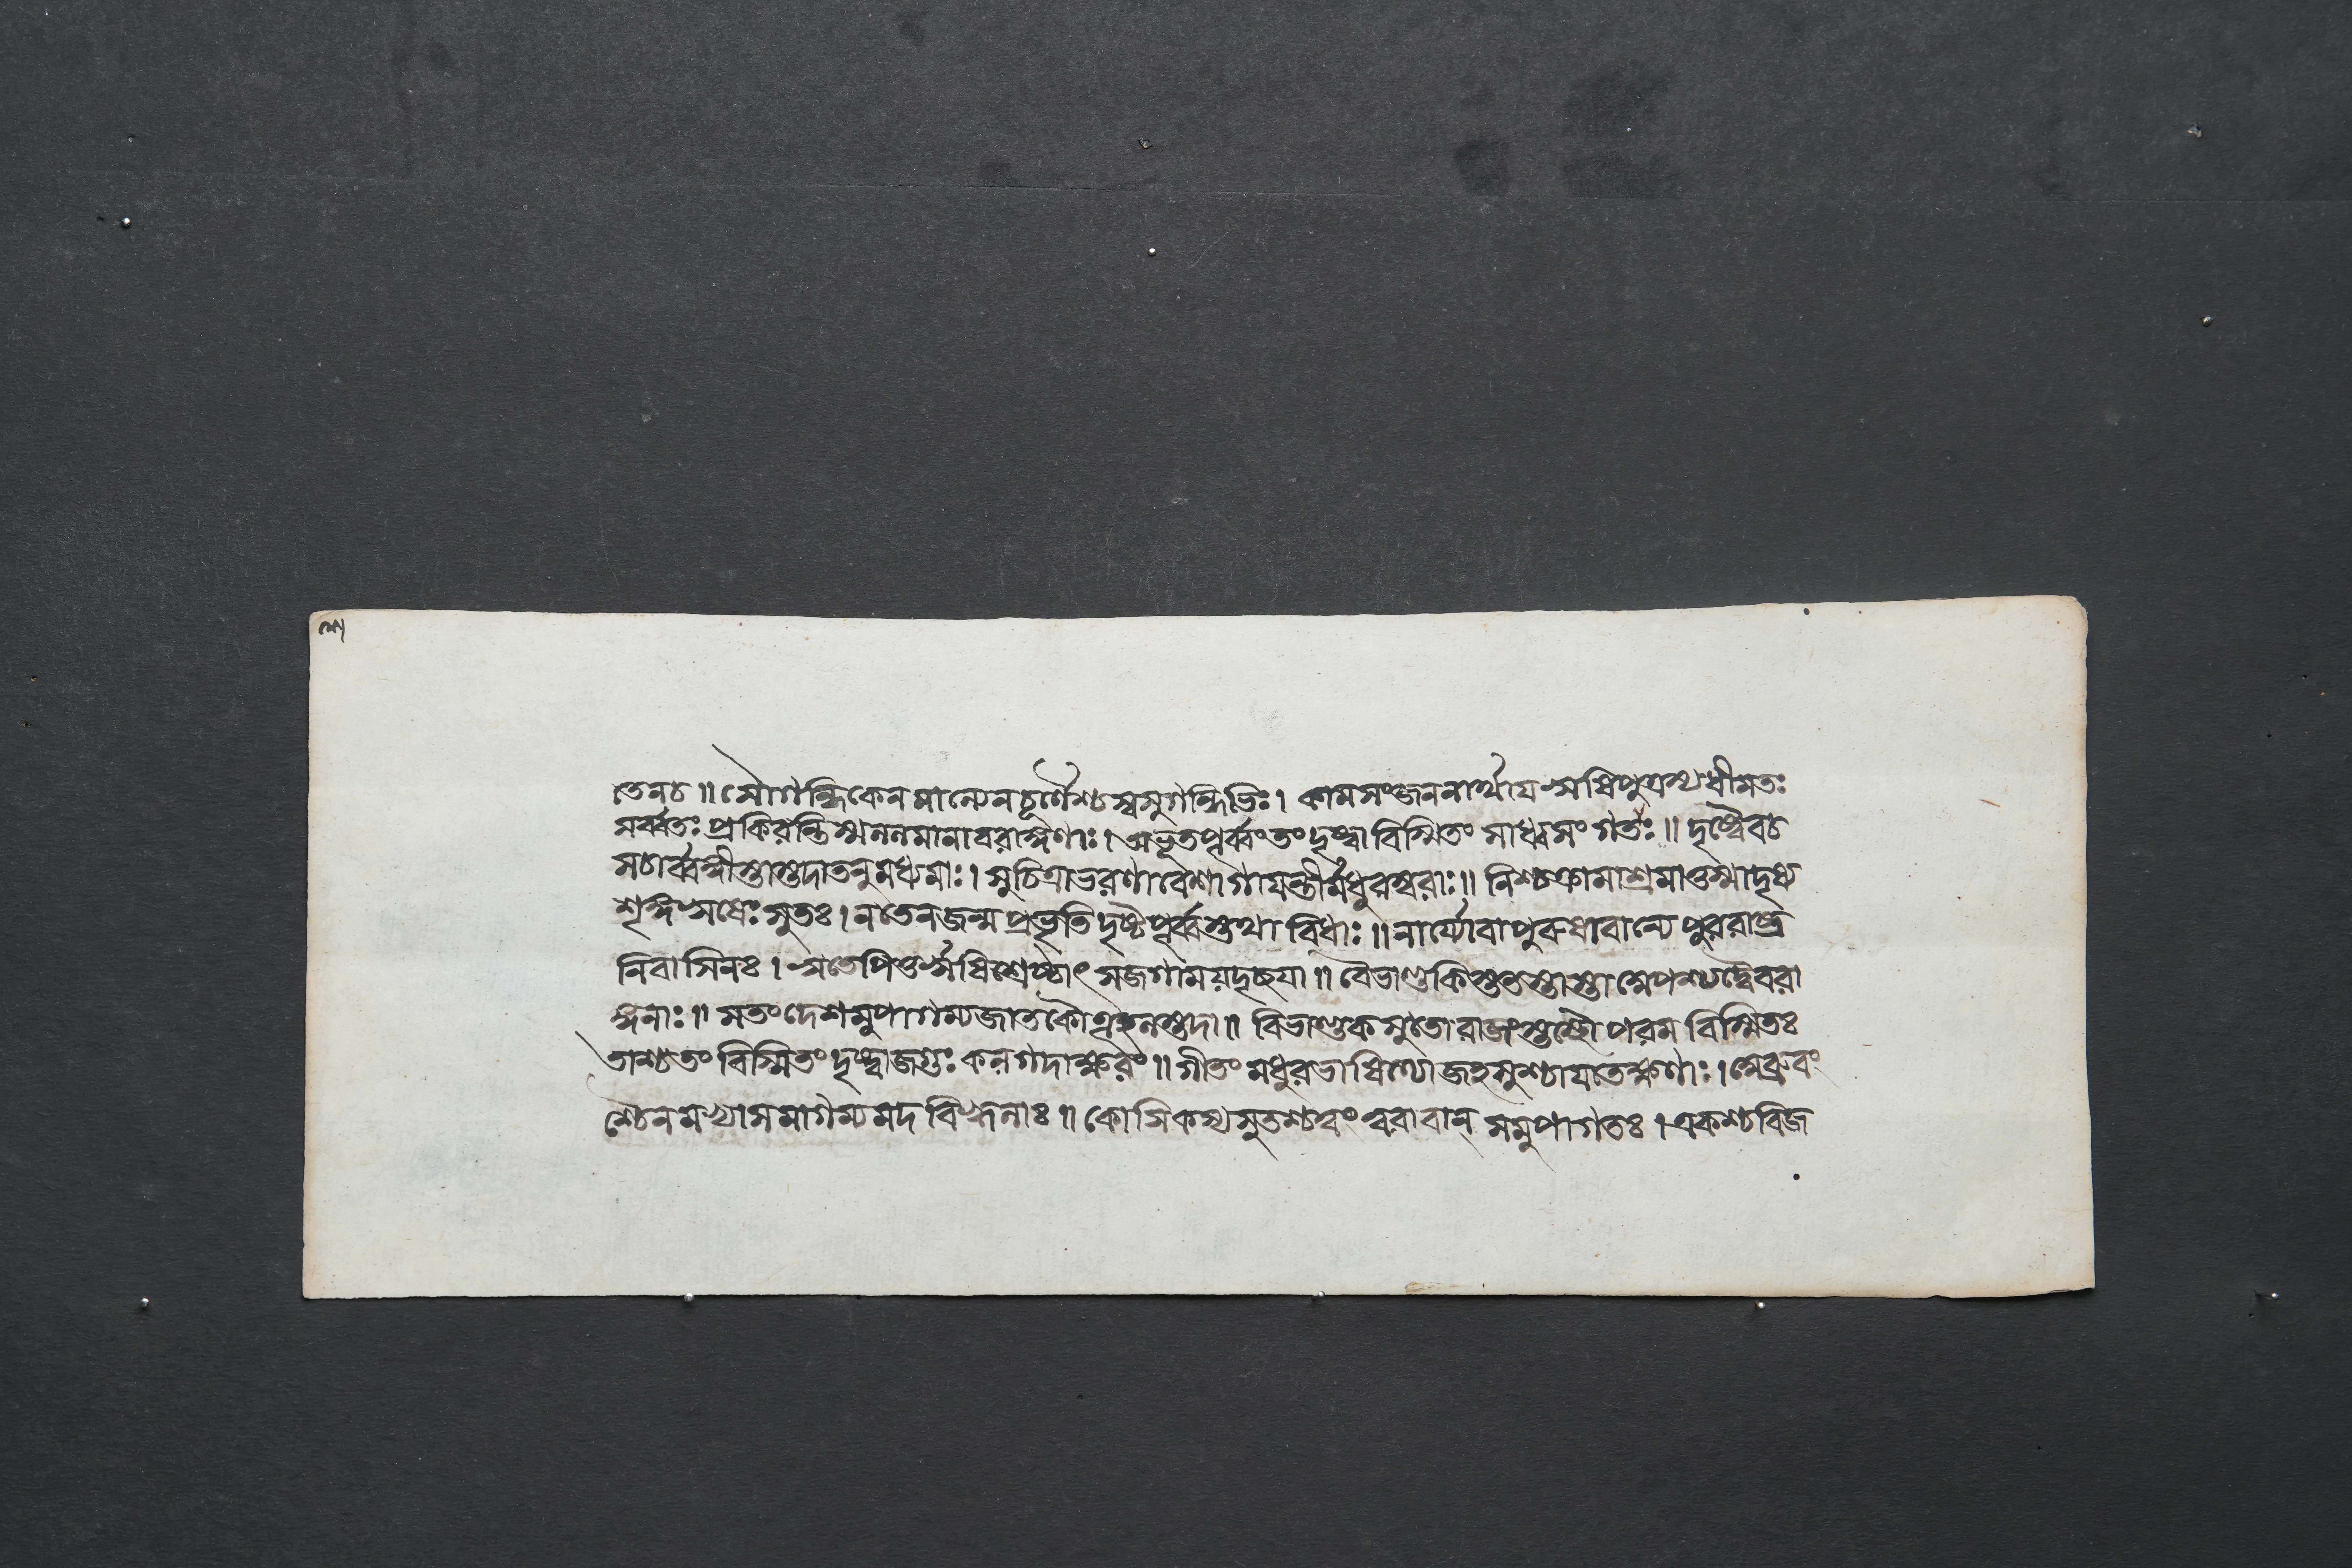 তেনচ ॥ সৌগন্ধিকেনমাল্যেনচূর্ণৈশ্চস্বসুগন্ধিভিঃ। কামসংজননার্থায ঋষিপুত্রস্যধীমতঃ
সর্ব্বতঃ প্রকিরন্তিস্ম ললমানাবরাঙ্গণাঃ। অভূতপূর্ব্বংতং দৃষ্ট্বা বিস্মিতং সাধ্বসং গতঃ ॥ দৃষ্ট্বৈবচ
সচার্ব্বঙ্গীস্তাস্তদাতনুমধ্যমাঃ। সুচিত্রাভরণাবেশাগাযন্তীর্মধুরস্বরাঃ॥ নিশ্চক্রামাশ্রমাত্তস্মাদৃষ্য
শৃঙ্গঋষেঃ সুতঃ। নতেনজন্ম প্রভৃতি দৃষ্টপূর্ব্বস্তথা বিধাঃ ॥ নার্য্যোবাপুরুষাবান্যে পুররাষ্ট্র
নিবাসিনঃ। ঋতেপিতুর্ঋষিশ্রেষ্ঠাৎ সজগাময়দৃচ্ছযা ॥ বৈভাণ্ডকিস্ততস্তাস্তা অপশ্যদ্বৈবরা
ঙ্গনাঃ ॥ সতংদেশমুপাগম্যজাতকৌতূহলস্তদা ॥ বিভাণ্ডকসুতোরাজংস্তস্থৌ পরম বিস্মিতঃ
তাশ্চতং বিস্মিতং দৃষ্ট্বাজগুঃ কলগদাক্ষরং ॥ গীতং মধুরভাষিণ্যোজহসুশ্চাযতেক্ষণাঃ। অব্রুবং
শ্চৈনমথাসমাগম্যমদ বিহ্বলাঃ ॥ কোসিকস্যসুতশ্চত্বং ত্বরাবান্ সমুপাগতঃ। একশ্চবিজ